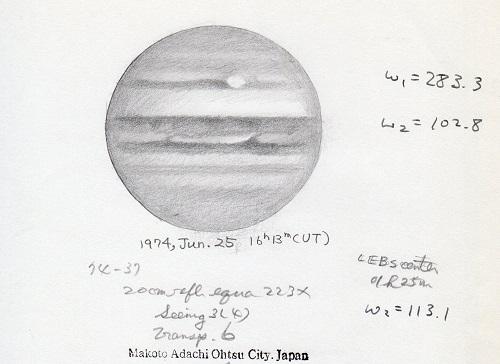 ω₁ = 283.3
ω₂ = 102.8
1974, Jun. 25 16ʰ13ᵐ(UT)
74-37
20cm refl equa 223×
Seeing 3(4)
Transp. 6
LEBs center
ω₂ = 113.1
Makoto Adachi Ohtsu City. Japan